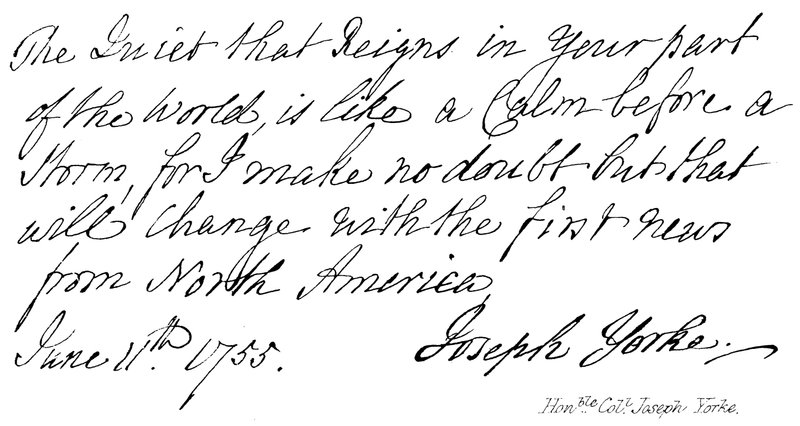 The Quiet that Reigns in Your part
of the World, is like a Calm before a
Storm, for I make no doubt but that
will Change with the first news
from North America,
June 11th. 1755.
Joseph Yorke.
Honble Coll. Joseph Yorke.